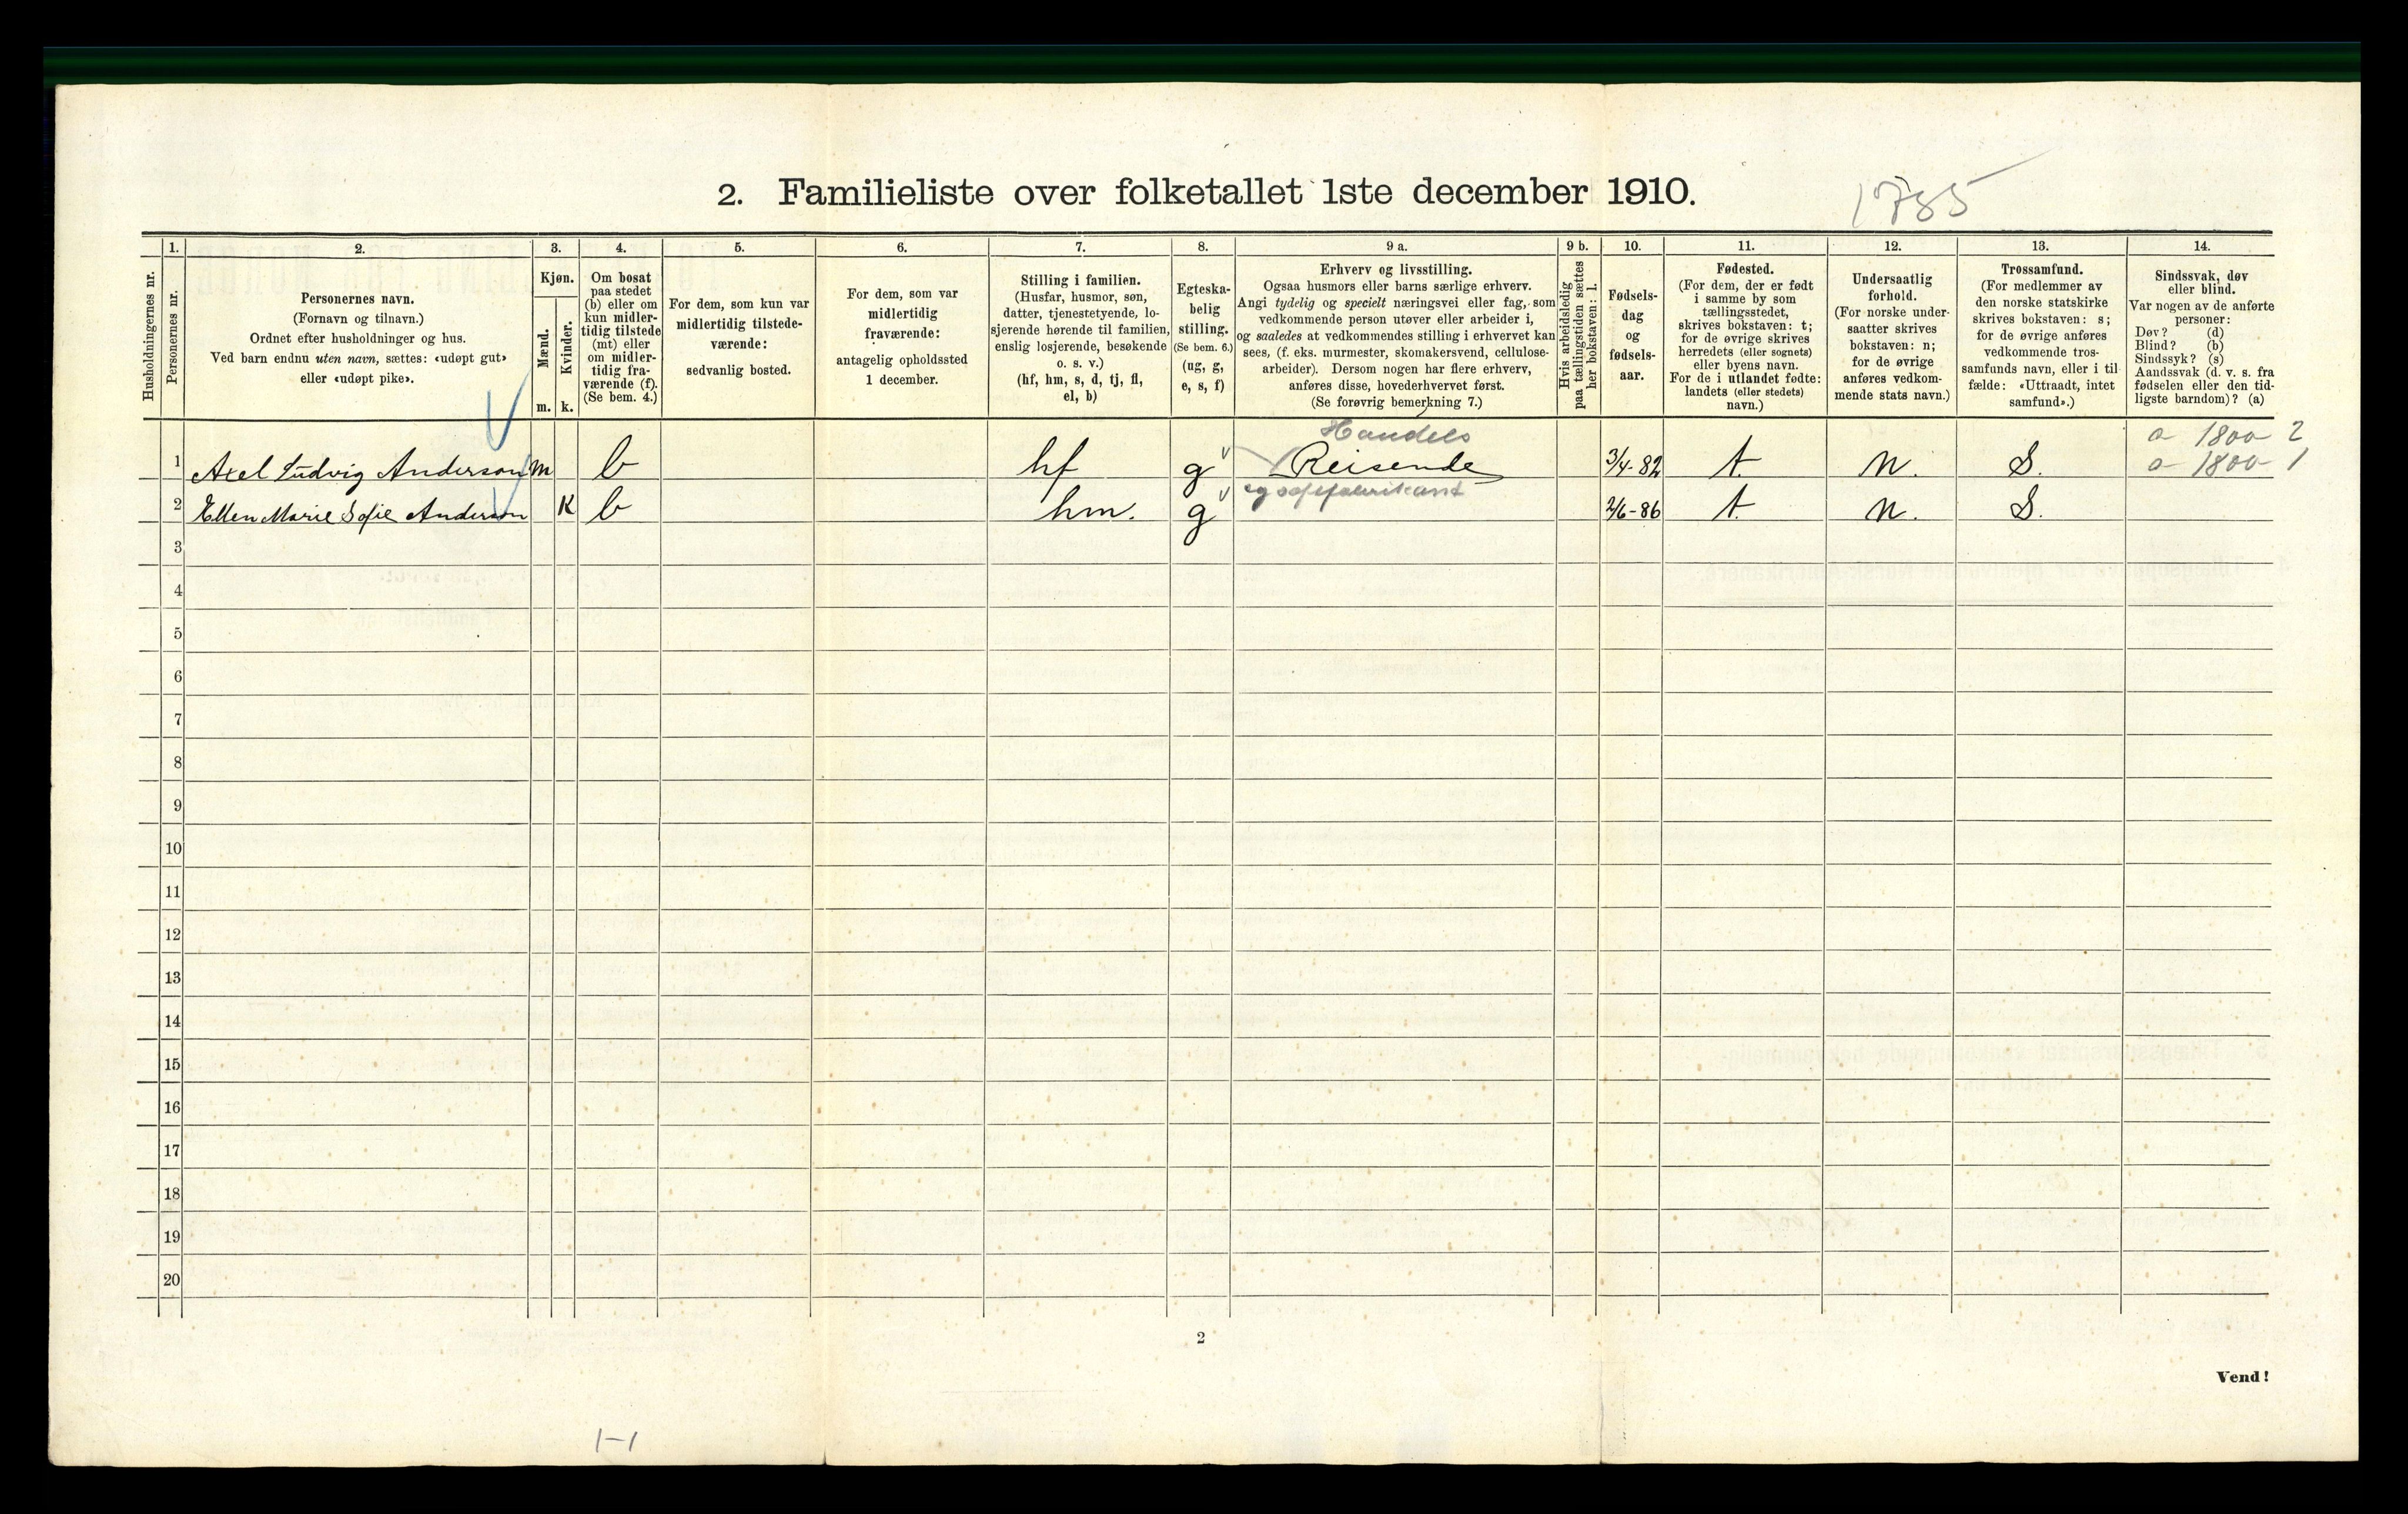 2. Familieliste over folketallet 1ste december 1910.
1785
1. 2. 3. 4. 5. 6. 7. 8. 9 a. 9 b. 10. 11. 12. 13. 14.
Husholdningernes nr.
Personernes nr.
Personernes navn.
(Fornavn og tilnavn.)
Ordnet efter husholdninger og hus.
Ved barn endnu uten navn, sættes: «udøpt gut»
eller «udøpt pike».
Kjøn.
Mænd.
Kvinder.
m. k.
Om bosat
paa stedet
(b) eller om
kun midler-
tidig tilstede
(mt) eller
om midler-
tidig fra-
værende (f).
(Se bem. 4.)
For dem, som kun var
midlertidig tilstede-
værende:
sedvanlig bosted.
For dem, som var
midlertidig
fraværende:
antagelig opholdssted
1 december.
Stilling i familien.
(Husfar, husmor, søn,
datter, tjenestetyende, lo-
sjerende hørende til familien,
enslig losjerende, besøkende
o. s. v.)
(hf, hm, s, d, tj, fl,
el, b)
Egteska-
belig
stilling.
(Se bem. 6.)
(ug, g,
e, s, f)
Erhverv og livsstilling.
Ogsaa husmors eller barns særlige erhverv.
Angi tydelig og specielt næringsvei eller fag, som
vedkommende person utøver eller arbeider i,
og saaledes at vedkommendes stilling i erhvervet kan
sees, (f. eks. murmester, skomakersvend, cellulose-
arbeider). Dersom nogen har flere erhverv,
anføres disse, hovederhvervet først.
(Se forøvrig bemerkning 7.)
Hvis arbeidsledig
paa tællingstiden sættes
her bokstaven: l.
Fødsels-
dag
og
fødsels-
aar.
Fødested.
(For dem, der er født
i samme by som
tællingsstedet,
skrives bokstaven: t;
for de øvrige skrives
herredets (eller sognets)
eller byens navn.
For de i utlandet fødte:
landets (eller stedets)
navn.)
Undersaatlig
forhold.
(For norske under-
saatter skrives
bokstaven: n;
for de øvrige
anføres vedkom-
mende stats navn.)
Trossamfund.
(For medlemmer av
den norske statskirke
skrives bokstaven: s;
for de øvrige anføres
vedkommende tros-
samfunds navn, eller i til-
fælde: «Uttraadt, intet
samfund».)
Sindssvak, døv
eller blind.
Var nogen av de anførte
personer:
Døv? (d)
Blind? (b)
Sindssyk? (s)
Aandssvak (d. v. s. fra
fødselen eller den tid-
ligste barndom)? (a)
Handels 1800 2
1 Axel Ludvig Anderson m b hf g Reisende 3/4-82 t. n. S. 1800 1
og
2 Ellen Marie Sofie Anderson K b hm. g 2/6-86 t. n. S.
3
4
5
6
7
8
9
10
11
12
13
14
15
16
17
18
19
20
2
Vend!
1-1